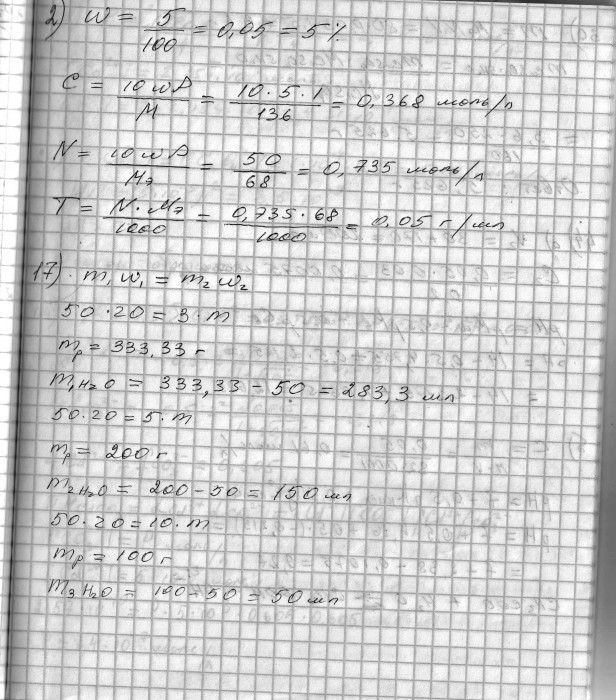 2) w = 5/100 = 0,05 = 5%
C = 10wρ/M = 10·5·1/136 = 0,368 моль/л
N = 10wρ/Mэ = 50/68 = 0,735 моль/л
T = N·Mэ/1000 = 0,735·68/1000 = 0,05 г/мл
17). m₁w₁ = m₂w₂
50·20 = 3·m
mр = 333,33 г
m₁H₂O = 333,33 - 50 = 283,3 мл
50·20 = 5·m
mр = 200 г
m₂H₂O = 200 - 50 = 150 мл
50·20 = 10·m
mр = 100 г
m₃H₂O = 100 - 50 = 50 мл